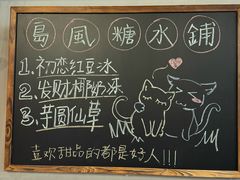 島風糖水鋪
1、初恋红豆冰
2、发财椰奶冻
3、芋圆仙草
喜欢甜品的都是好人!!!